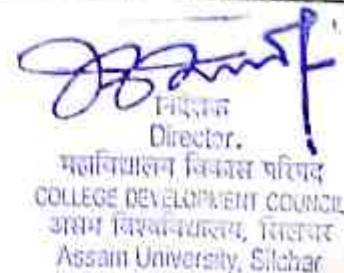 निदेशक
Director.
महाविद्यालय विकास परिषद
COLLEGE DEVELOPMENT COUNCIL
असम विश्वविद्यालय, सिलचर
Assam University, Silchar